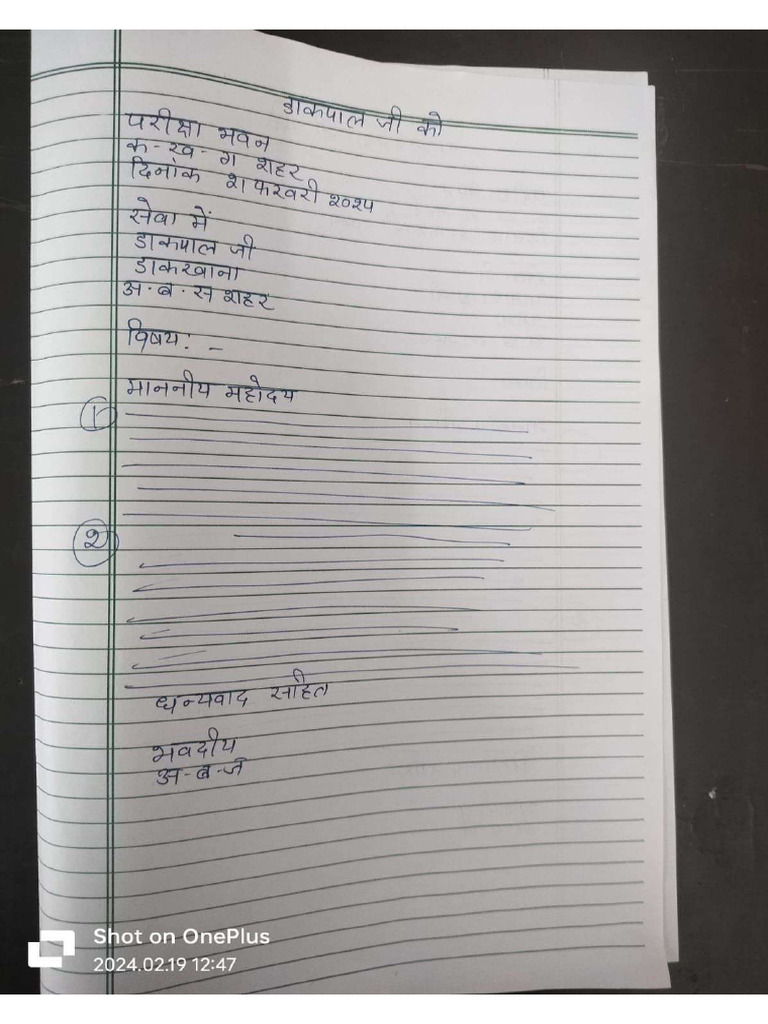 डाकपाल जी को
परीक्षा भवन
क-ख-ग शहर
दिनांक २१ फरवरी २०२५
सेवा में
डाकपाल जी
डाकखाना
अ.ब.स शहर
विषय: -
माननीय महोदय
१
२
धन्यवाद सहित
भवदीय
अ-ब-ज
Shot on OnePlus
2024.02.19 12:47